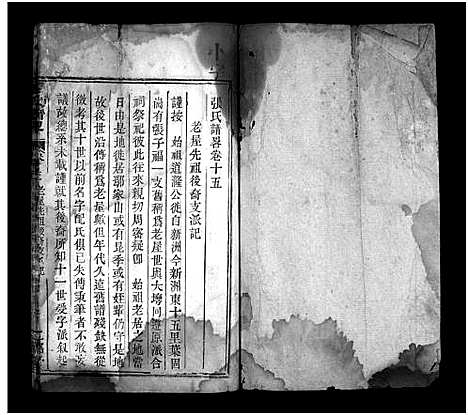 張氏譜畧卷十五
老屋先祖後裔支派記
謹按 始祖道漋公徙自新洲今新洲東十五里葉周
尚有張子福一支舊稱為老屋世與大塆同證原派合
祠祭祀彼此往來親切周審疑卽 始祖老居之地當
日由是地徙居郭家山或有昆季或有姪輩仍守是地
故後世沿傳稱為老屋歟但年代久遠舊譜殘缺無從
徵考其十世以前名字配氏俱已失傳秉筆者不敢妄
議故總系未載謹就其後裔所知十一世受字派叙起